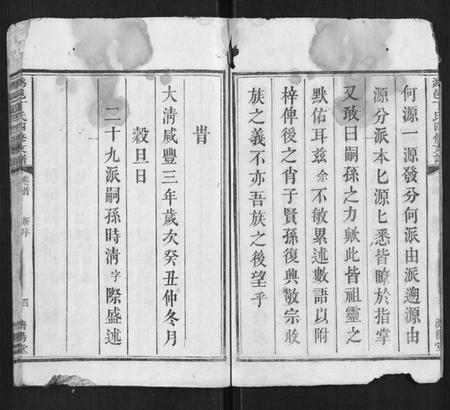 何源一源發分何派由派遡源由
源分派本匕源匕悉皆瞭於指掌
又敢曰嗣孫之力歟此皆祖靈之
默佑耳兹余不敏累述數語以附
梓俾後之肖子賢孫復興敬宗收
族之義不亦吾族之後望乎
旹
大清咸豐三年歲次癸丑仲冬月
穀旦日
二十九派嗣孫時清字際盛述
氏四修支譜
卷首
新序
四